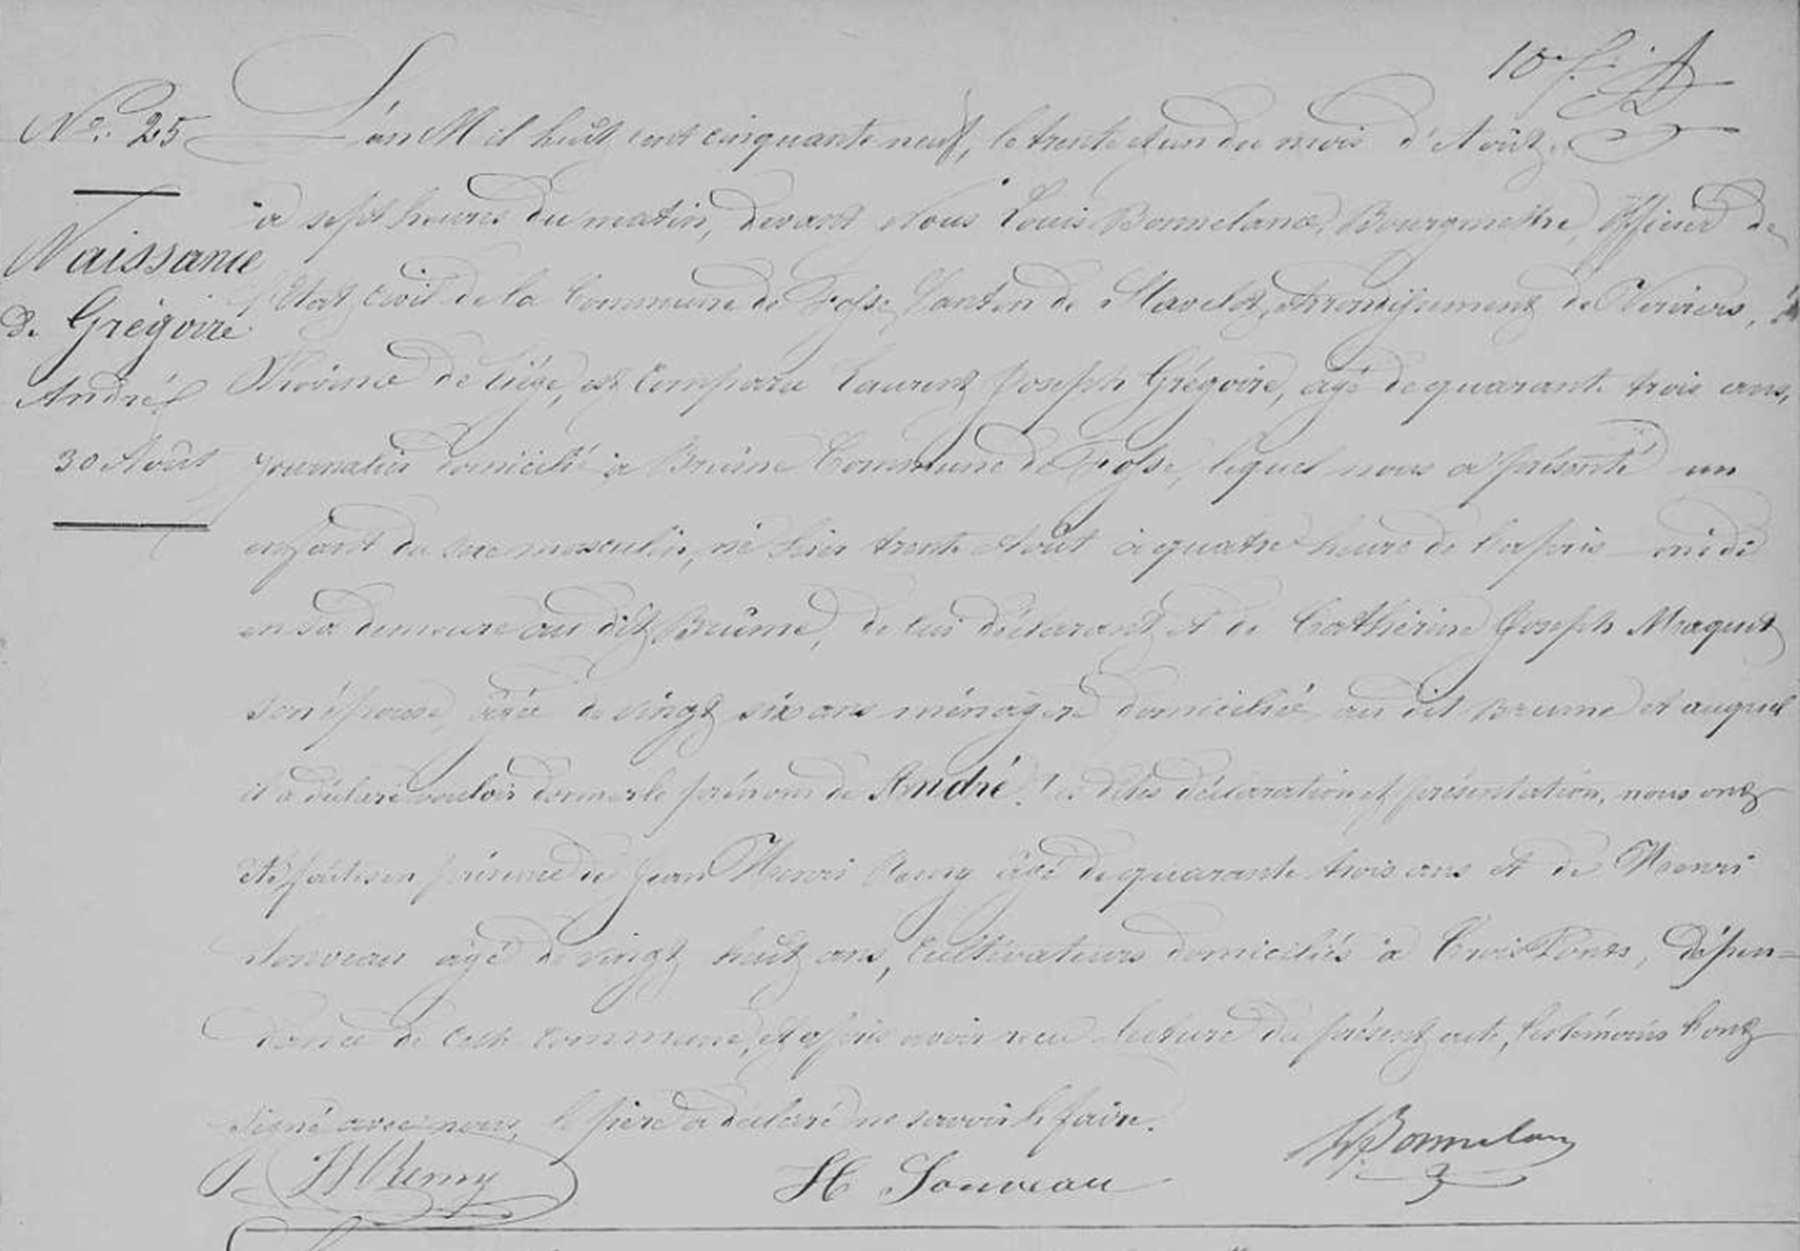 N.° 25
Naissance
de Grégoire
André
30 Août
10e f.
L'an Mil huit cent cinquante neuf, le trente et un du mois d'Août
à sept heures du matin, devant Nous Louis Bonnelance, Bourgmestre, Officier de
l'Etat civil de la Commune de Fosse, Canton de Stavelot, Arrondissement de Verviers,
Province de Liége, est comparu Laurent Joseph Grégoire, âgé de quarante trois ans,
journalier domicilié à Brûme Commune de Fosse, lequel nous a présenté un
enfant du sexe masculin, né hier trente Août à quatre heure de l'après midi
en sa demeure au dit Brûme, de lui déclarant et de Catherine Joseph Maquet
son épouse, âgée de vingt six ans ménagère domiciliée au dit Brume et auquel
il a déclaré vouloir donner le prénom de André. Les dites déclaration et présentation, nous ont
été faites en présence de Jean Henri Remy âgé de quarante trois ans et de Henri
Sonveau âgé de vingt huit ans, cultivateurs domiciliés à Trois Ponts, dépen=
dance de cette commune, et après avoir reçu lecture du présent acte, les témoins l'ont
signé avec nous, le père a déclaré ne savoir le faire.
JHRemy
H Sonveau
Bonnelanc